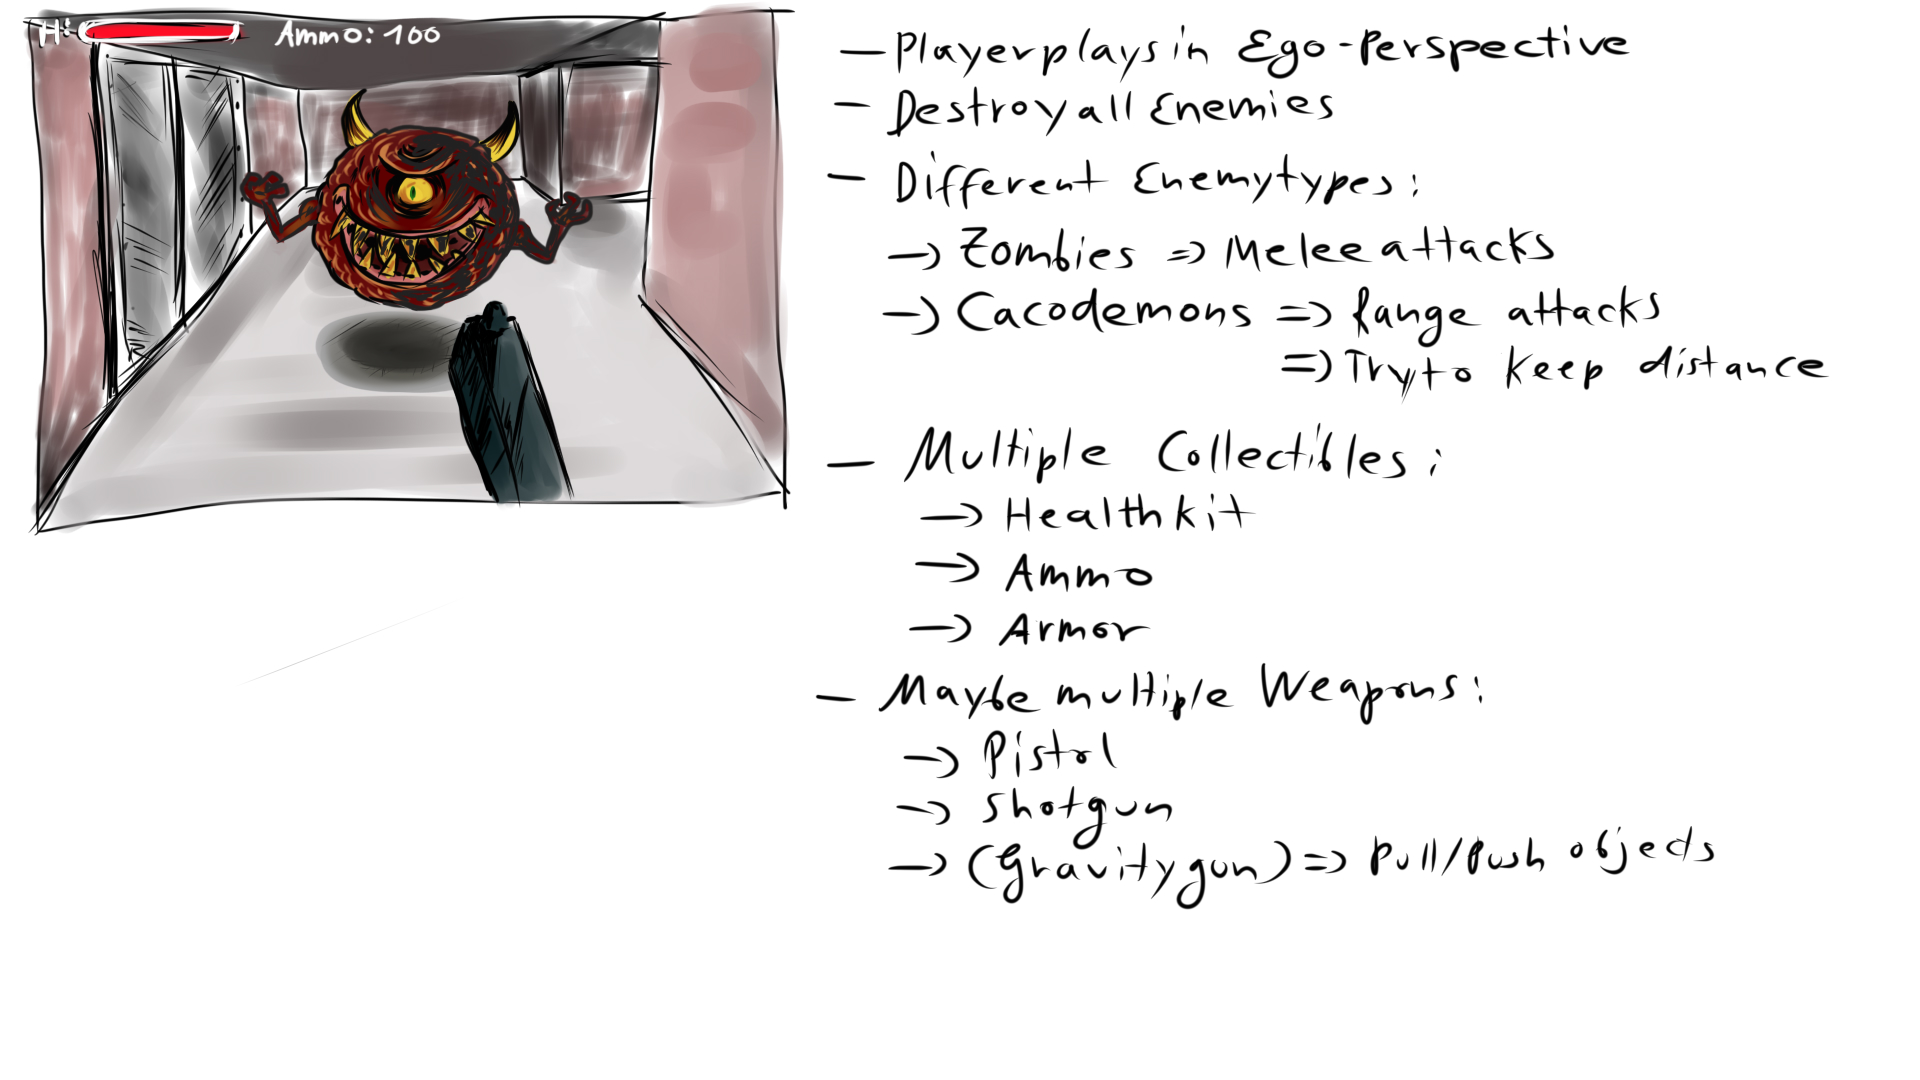 H:
Ammo: 100
- Player plays in Ego-Perspective
- Destroy all Enemies
- Different Enemytypes:
-> Zombies => Melee attacks
-> Cacodemons => Range attacks
=> Try to keep distance
- Multiple Collectibles:
-> Healthkit
-> Ammo
-> Armor
- Maybe multiple Weapons:
-> Pistol
-> Shotgun
-> (Gravitygun) => Pull/Push objects